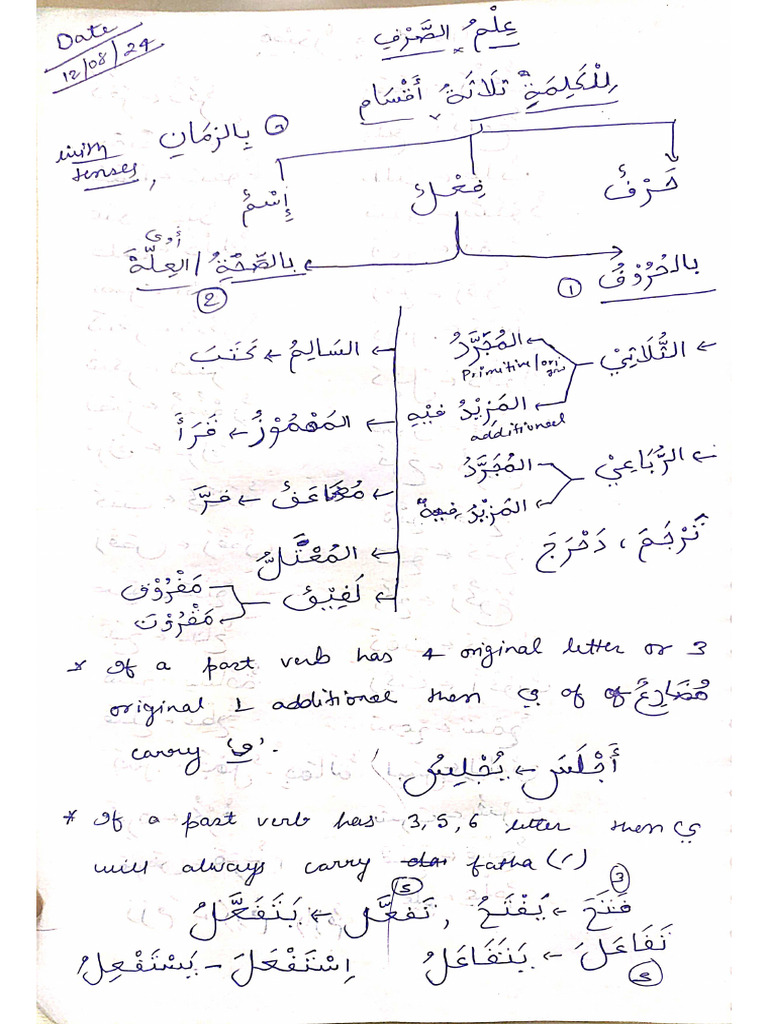 Date
12/08/24
عِلْمُ الصَّرْفِ
لِلْكَلِمَةِ ثَلَاثَةُ أَقْسَام
with tenses, ③ بِالزمَانِ
حَرْفُ فِعْلُ إِسْمُ
أ و ي
بالحُرُوْفُ ①
بالصِّحَّةِ / العِلَّةَ ②
← الثُّلَاثِيْ
المُجَرَّدُ
Primitive/origin
المَزِيْدُ فِيْهِ
additional
← الرُّبَاعِيْ
المُجَرَّدُ
المَزِيْدُ فِيهِ
تَرْجَمَ ، دَحْرَجَ
← السَالِمُ ← كَتَبَ
← المَهْمُوْزُ ← قَرَأَ
← مُضَاعَفُ ← فَرَّ
← المُعْتَلُّ
← لَفِيْقُ
مَفْرُوْق
مَقْرُوْن
* If a past verb has 4 original letter or 3
original 1 additional then ي of of مُضَارِعُ
carry 'و'.
أَجْلَسَ ← يُجْلِسُ
* If a past verb has 3, 5, 6 letter then ي
will always carry fatha (َ)
فَتَحَ ← يَفْتَحُ ③ , تَفَعَّلَ ← يَتَفَعَّلُ ⑤
تَفَاعَلَ ← يَتَفَاعَلُ ⑤ اِسْتَفْعَلَ - يَسْتَفْعِلُ